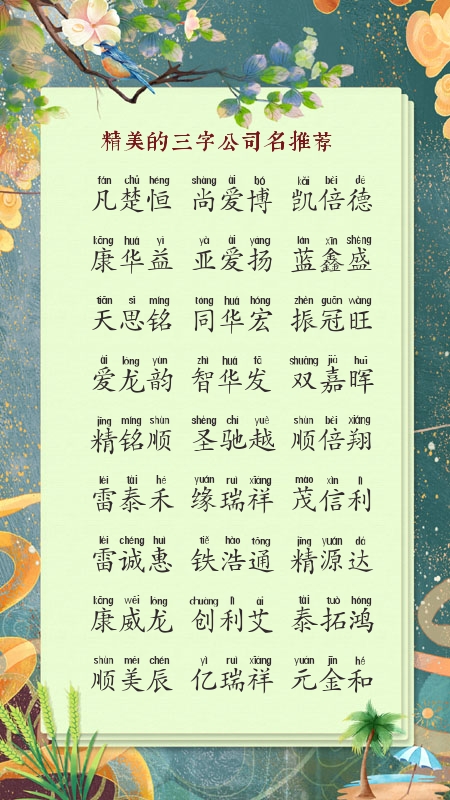 精美的三字公司名推荐
fán chǔ héng shàng ài bó kǎi bèi dé
凡楚恒 尚爱博 凯倍德
kāng huá yì yà ài yáng lán xīn shèng
康华益 亚爱扬 蓝鑫盛
tiān sī míng tóng huá hóng zhèn guān wàng
天思铭 同华宏 振冠旺
ài lóng yùn zhì huá fā shuāng jiā huī
爱龙韵 智华发 双嘉晖
jīng míng shùn shèng chí yuè shùn bèi xiáng
精铭顺 圣驰越 顺倍翔
léi tài hé yuán ruì xiáng mào xìn lì
雷泰禾 缘瑞祥 茂信利
léi chéng huì tiě hào tōng jīng yuán dá
雷诚惠 铁浩通 精源达
kāng wēi lóng chuàng lì ài tài tuò hóng
康威龙 创利艾 泰拓鸿
shùn měi chén yì ruì xiáng yuán jīn hé
顺美辰 亿瑞祥 元金和